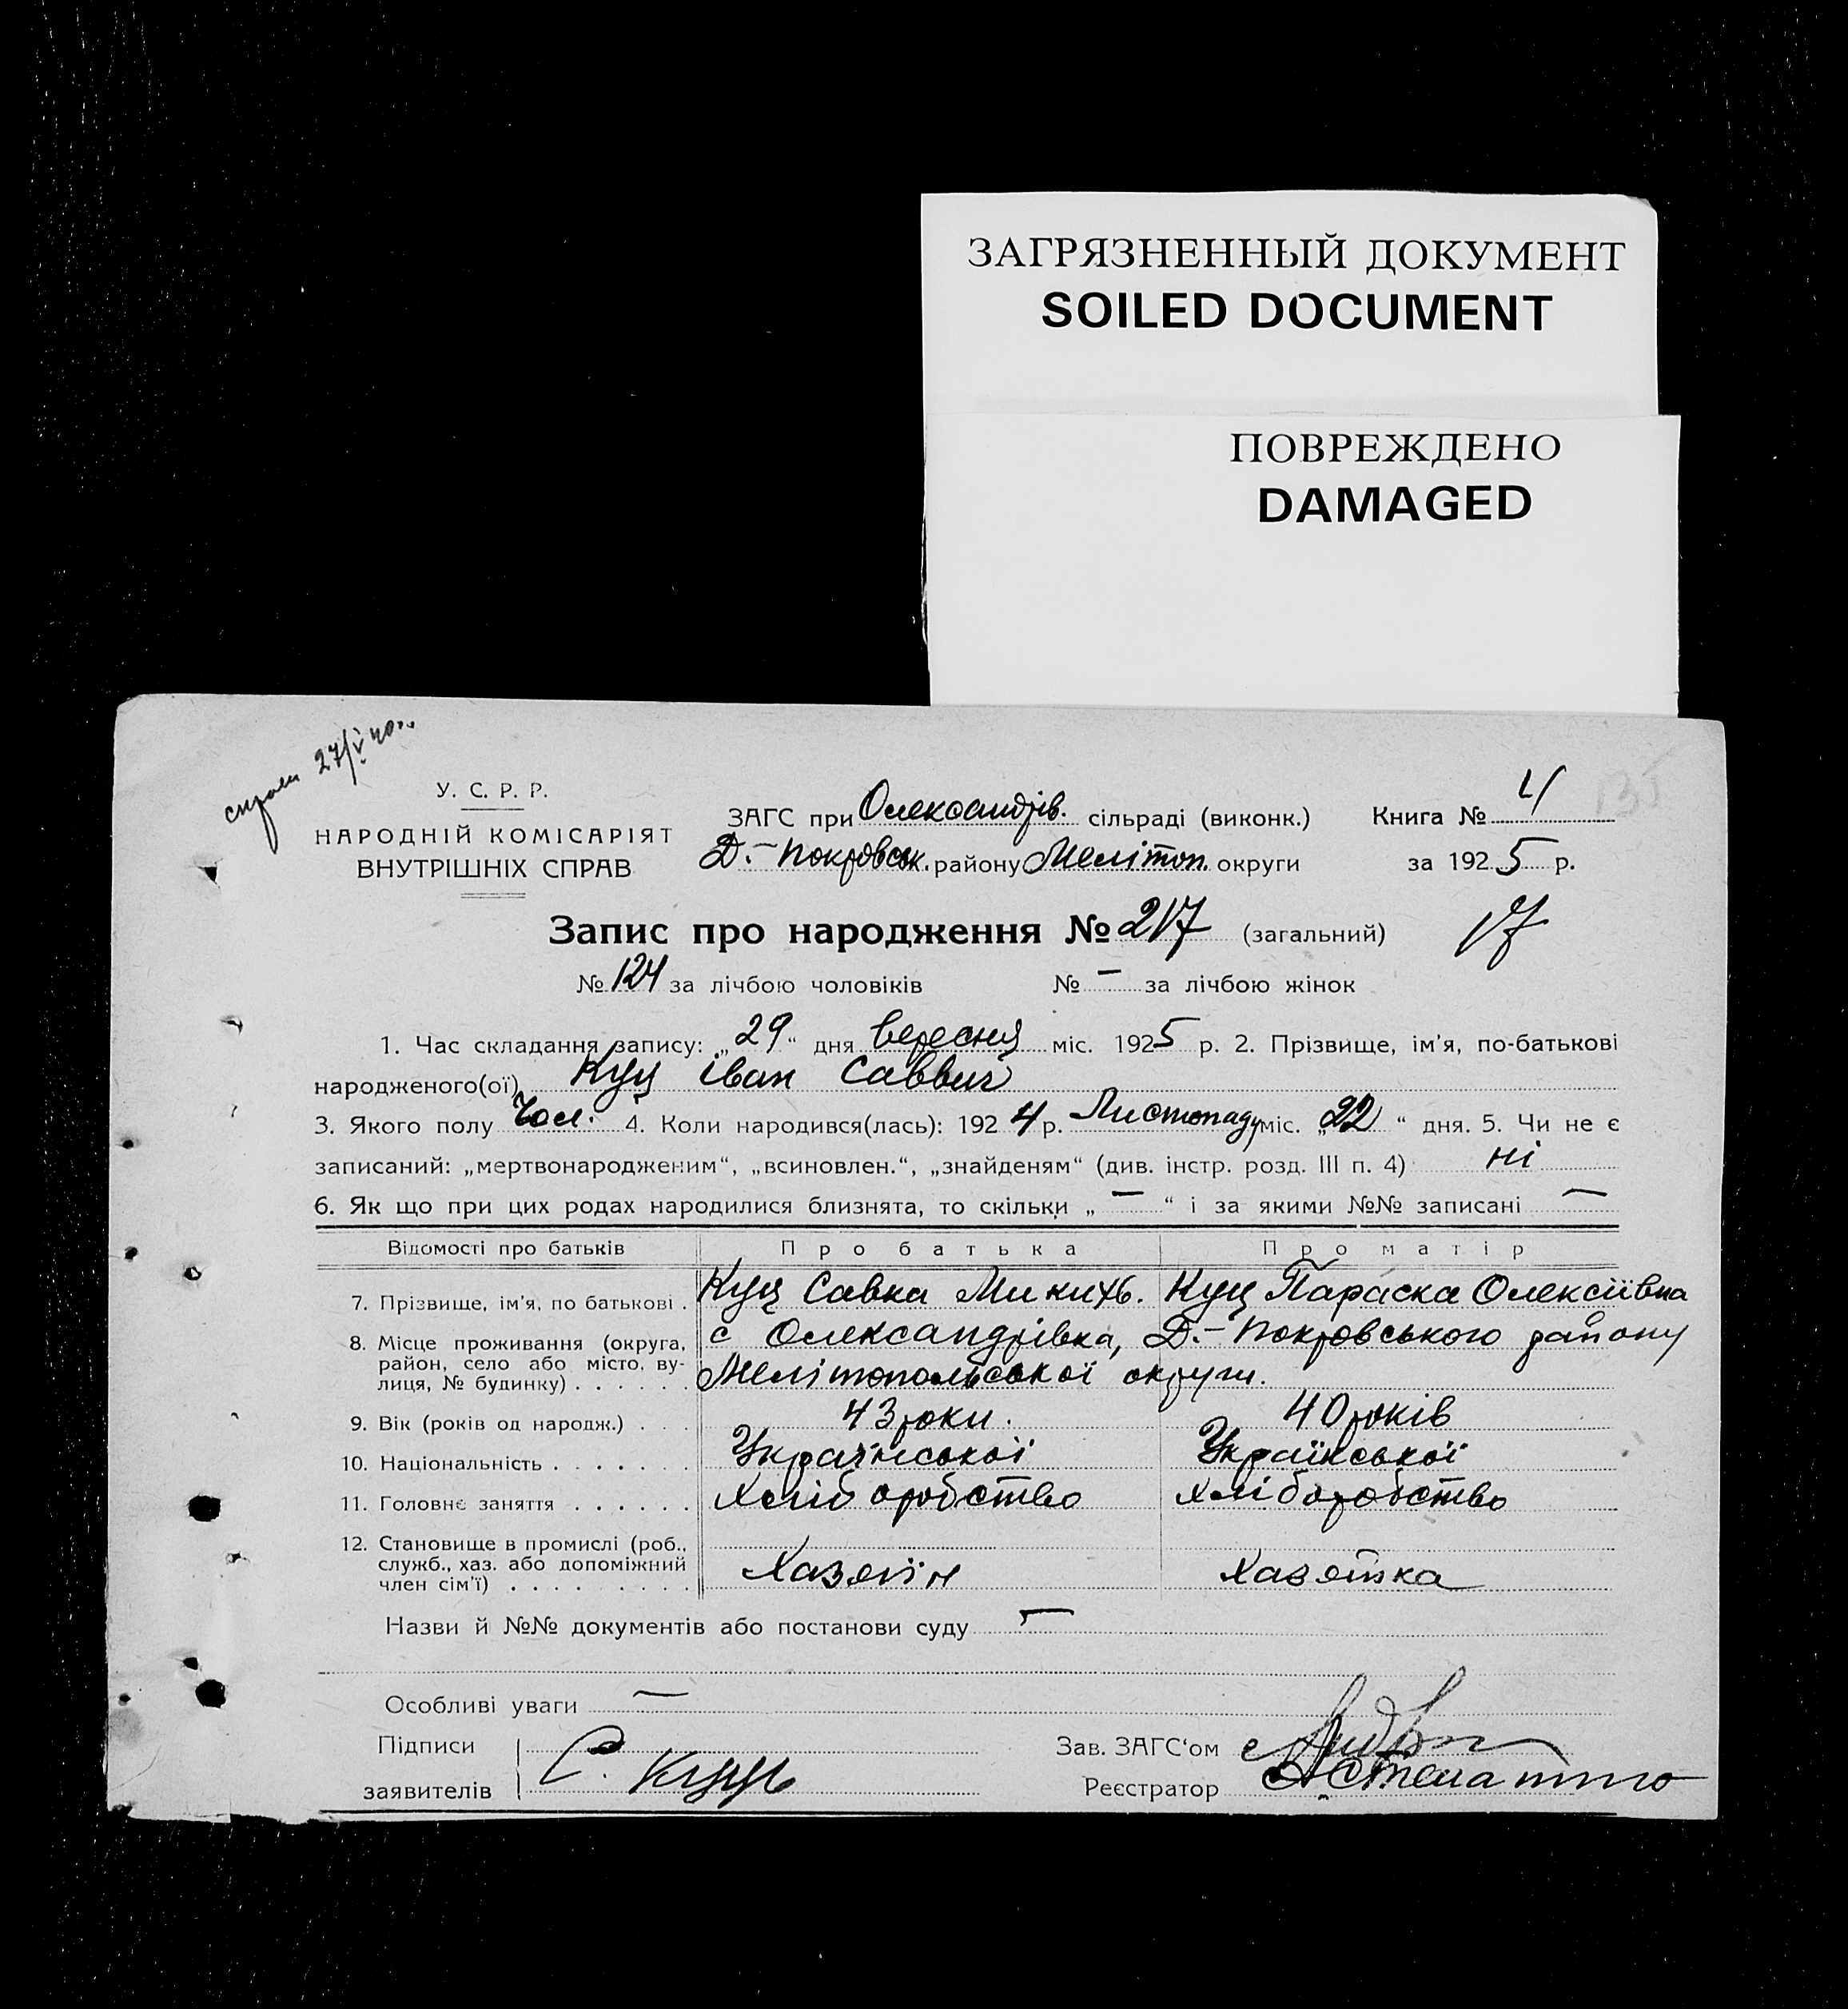 ЗАГРЯЗНЕННЫЙ ДОКУМЕНТ
SOILED DOCUMENT
ПОВРЕЖДЕНО
DAMAGED
27/V 40
У. С. Р. Р.
НАРОДНІЙ КОМІСАРІЯТ
ВНУТРІШНІХ СПРАВ
ЗАГС при Олександрів. сільраді (виконк.)
Д.-Покровськ. району Мелітоп. округи
Книга № 4
за 1925 р.
Запис про народження № 217 (загальний)
№ 124 за лічбою чоловіків № — за лічбою жінок
1. Час складання запису: „29“ дня вересня міс. 1925 р. 2. Прізвище, ім'я, по-батькові
народженого(ої) Куц Іван Саввич
3. Якого полу Чол. 4. Коли народився(лась): 1924 р. Листопаду міс. „22“ дня. 5. Чи не є
записаний: „мертвонародженим“, „всиновлен.“, „знайденям“ (див. інстр. розд. III п. 4) ні
6. Як що при цих родах народилися близнята, то скільки „—“ і за якими №№ записані —
Відомості про батьків Про батька Про матір
7. Прізвище, ім'я, по батькові . Куц Савка Микитв. Куц Параска Олексіївна
8. Місце проживання (округа, с Олександрівка, Д.-Покровського району
район, село або місто, ву-
лиця, № будинку) . . . . . . Мелітопольської округи.
9. Вік (років од народж.) . . . 43 роки. 40 років
10. Національність . . . . . . . Української Української
11. Головнє заняття . . . . . . Хліборобство Хліборобство
12. Становище в промислі (роб.,
служб., хаз. або допоміжний
член сім'ї) . . . . . . . . . Хазяїн Хазяйка
Назви й №№ документів або постанови суду —
Особливі уваги —
Підписи Зав. ЗАГС'ом
заявителів С. Куць Реєстратор